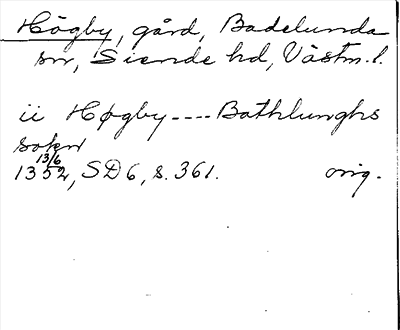 Högby, gård, Badelunda
sn, Siende hd, Västm. l.
ii Høgby ---- Bathlunghs
sokn
13/6
1352, SD 6, s. 361. orig.